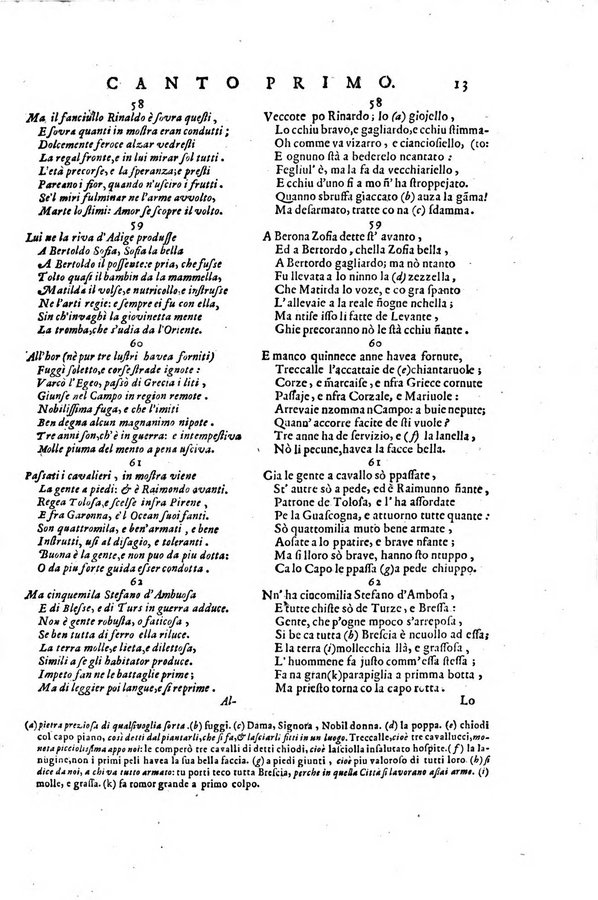 CANTO PRIMO. 13
58
Ma, il fanciullo Rinaldo è sovra questi,
E sovra quanti in mostra eran condutti;
Dolcemente feroce alzar vedresti
La regal fronte, e in lui mirar sol tutti.
L'età precorse, e la speranza; e presti
Pareano i fior, quando n'usciro i frutti.
Se'l miri fulminar ne l'arme avvolto,
Marte lo stimi: Amor se scopre il volto.
59
Lui ne la riva d'Adige produsse
A Bertoldo Sofia, Sofia la bella
A Bertoldo il possente: e pria, che fusse
Tolto quasi il bambin da la mammella,
Matilda il volse, e nutricollo, e instrusse
Ne l'arti regie: e sempre ei fu con ella,
Sin ch'invaghì la giovinetta mente
La tromba, che s'udia da l'Oriente.
60
All'hor (nè pur tre lustri havea forniti)
Fuggì soletto, e corse strade ignote:
Varcò l'Egeo, passò di Grecia i liti,
Giunse nel Campo in region remote.
Nobilissima fuga, e che l'imiti
Ben degna alcun magnanimo nipote.
Tre anni son, ch'è in guerra: e intempestiva
Molle piuma del mento a pena usciva.
61
Passati i cavalieri, in mostra viene
La gente a piedi: & è Raimondo avanti.
Regea Tolosa, e scelse infra Pirene,
E fra Garonna, e'l Ocean suoi fanti.
Son quattromila, e ben'armati, e bene
Instrutti, usi al disagio, e toleranti.
Buona è la gente, e non puo da piu dotta:
O da piu forte guida esser condotta.
62
Ma cinquemila Stefano d'Ambuosa
E di Blesse, e di Turs in guerre adduce.
Non è gente robusta, o faticosa,
Se ben tutta di ferro ella riluce.
La terra molle, e lieta, e dilettosa,
Simili a se gli habitator produce.
Impeto fan ne le battaglie prime;
Ma di leggier poi langue, e si reprime.
Al-
58
Veccote po Rinardo; lo (a) giojello,
Lo cchiu bravo, e gagliardo, e cchiu stimma-
Oh comme va vizarro, e cianciosiello, (to:
E ognuno stà a bederelo ncantato:
Fegliul' è, ma la fa da vecchiariello,
E cchiu d'uno si a moñ' ha stroppejato.
Quanno sbruffa giaccato (b) auza la gãma!
Ma desarmato, tratte co na (c) sdamma.
59
A Berona Zofia dette st' avanto,
Ed a Bertordo, chella Zofia bella,
A Bertordo gagliardo: e nnitto, e nfanto
Fu llevata a lo ninno la (d) zezzella,
Che Matirda lo voze, e co gra spanto
L'allevaie a la reale ñogne nchella;
Ma ntise isso li fatte de Levante,
Ghie precoranno nò le cchiu ñante.
60
E manco quinnece anne havea fornute,
Treccalle l'accattaie de (e) chiantaruole;
Corze, e m̃arcaise, e nfra Griece cornute
Passaje, e nfra Corzale, e Mariuole:
Arrevaie nzomma n Campo: a buie nepute;
Quann'accorre facite de sti vuole?
Tre anne ha de servizio, e (f) la lanella,
Nò li pecune, havea la facce bella.
61
Gia le gente a cavallo sò ppassate,
St' autre sò a pede, ed è Raimunno ñante,
Patrone de Tolosa, l' ha affordate
Pe la Guascogna, e attuorno tutte quante:
Sò quattomilia muto bene armate,
Aosate a lo ppatire, e brave nfante;
Ma si lloro sò brave, hanno sto ntuppo,
Ca lo Capo le ppassa (g) a pede chiuppo.
62
Nn' ha cincomilia Stefano d'Ambosa,
E tutte chiste sò de Turze, e Bressa:
Gente, che p'ogne mpoco s'arreposa,
Si be ca tutta (h) Brescia è ncuollo ad essa;
E la terra (i) mollecchia llà, e grassosa,
L' huommene fa justo comm'essa stessa;
Fa na gran (k) parapiglia a primma botta,
Ma priesto torna co la capo rotta.
Lo
(a) pietra preziosa di qualsivoglia sorta. (b) fuggi. (c) Dama, Signora, Nobil donna. (d) la poppa. (e) chiodi
col capo piano, così detti dal piantarli, che si fa, & lasciarli fitti in un luogo. Treccalle, cioè tre cavallucci, mo-
neta picciolissima appo noi: le comperò tre cavalli di detti chiodi, cioè lasciolla insalutato hospite. (f) la la-
nugine, non i primi peli havea la sua bella faccia. (g) a piedi giunti, cioè piu valoroso di tutti loro. (h) si
dice da noi, a chi va tutto armato: tu porti teco tutta Brescia, perche in quella Città si lavorano assai arme. (i)
molle, e grassa. (k) fa romor grande a primo colpo.